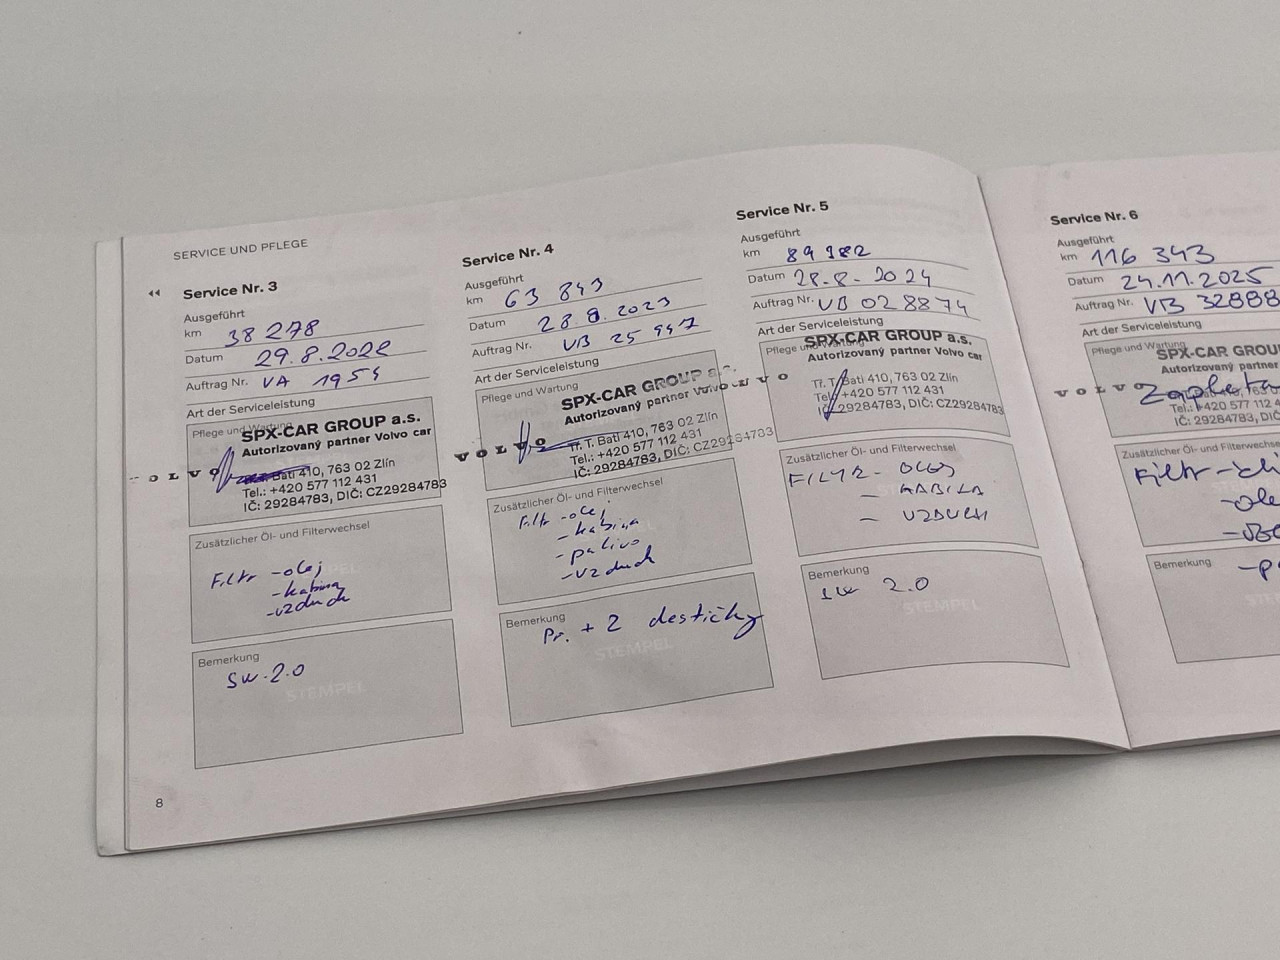 SERVICE UND PFLEGE
Service Nr. 3
Ausgeführt
km 38 278
Datum 29.8.2022
Auftrag Nr. VA 1954
Art der Serviceleistung
Pflege und Wartung
SPX-CAR GROUP a.s.
Autorizovaný partner Volvo car
VOLVO
Bati 410, 763 02 Zlín
Tel.: +420 577 112 431
IČ: 29284783, DIČ: CZ29284783
Zusätzlicher Öl- und Filterwechsel
Filtr - olej
- kabina
- vzduch
Bemerkung
SW 2.0
STEMPEL
8
Service Nr. 4
Ausgeführt
km 63 843
Datum 28.8.2023
Auftrag Nr. VB 25 997
Art der Serviceleistung
Pflege und Wartung
SPX-CAR GROUP a.s.
Autorizovaný partner Volvo
VOLVO
Tř. T. Bati 410, 763 02 Zlín
Tel.: +420 577 112 431
IČ: 29284783, DIČ: CZ29284783
Zusätzlicher Öl- und Filterwechsel
Filtr - olej
- kabina
- palivo
- vzduch
Bemerkung
Pr. + 2 destičky
STEMPEL
Service Nr. 5
Ausgeführt
km 89 982
Datum 28.8.2024
Auftrag Nr. VB 028874
Art der Serviceleistung
Pflege und Wartung
SPX-CAR GROUP a.s.
Autorizovaný partner Volvo car
VOLVO
Tř. T. Bati 410, 763 02 Zlín
Tel.: +420 577 112 431
IČ: 29284783, DIČ: CZ29284783
Zusätzlicher Öl- und Filterwechsel
FILTR - OLEJ
- KABINA
- VZDUCH
Bemerkung
SW 2.0
STEMPEL
Service Nr. 6
Ausgeführt
km 116 343
Datum 24.11.2025
Auftrag Nr. VB 32888
Art der Serviceleistung
Pflege und Wartung
SPX-CAR GROU
Autorizovaný partne
VOLVO
Tel.: +420 577 112 4
IČ: 29284783, DIČ: C
Zusätzlicher Öl- und Filterwechse
Filtr
- ole
Bemerkung
STE